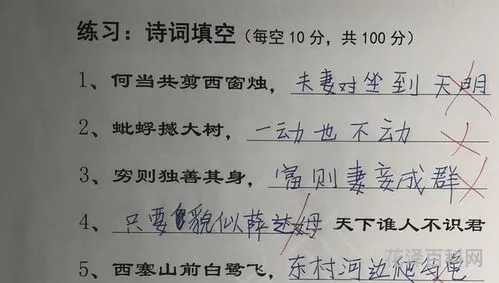 练习：诗词填空（每空10分，共100分）
1、何当共剪西窗烛，夫妻对坐到天明
2、蚍蜉撼大树，一动也不动
3、穷则独善其身，富则妻妾成群
4、只要貌似薛达姆 天下谁人不识君
5、西塞山前白鹭飞，东村河边爬乌龟
花泽百科网